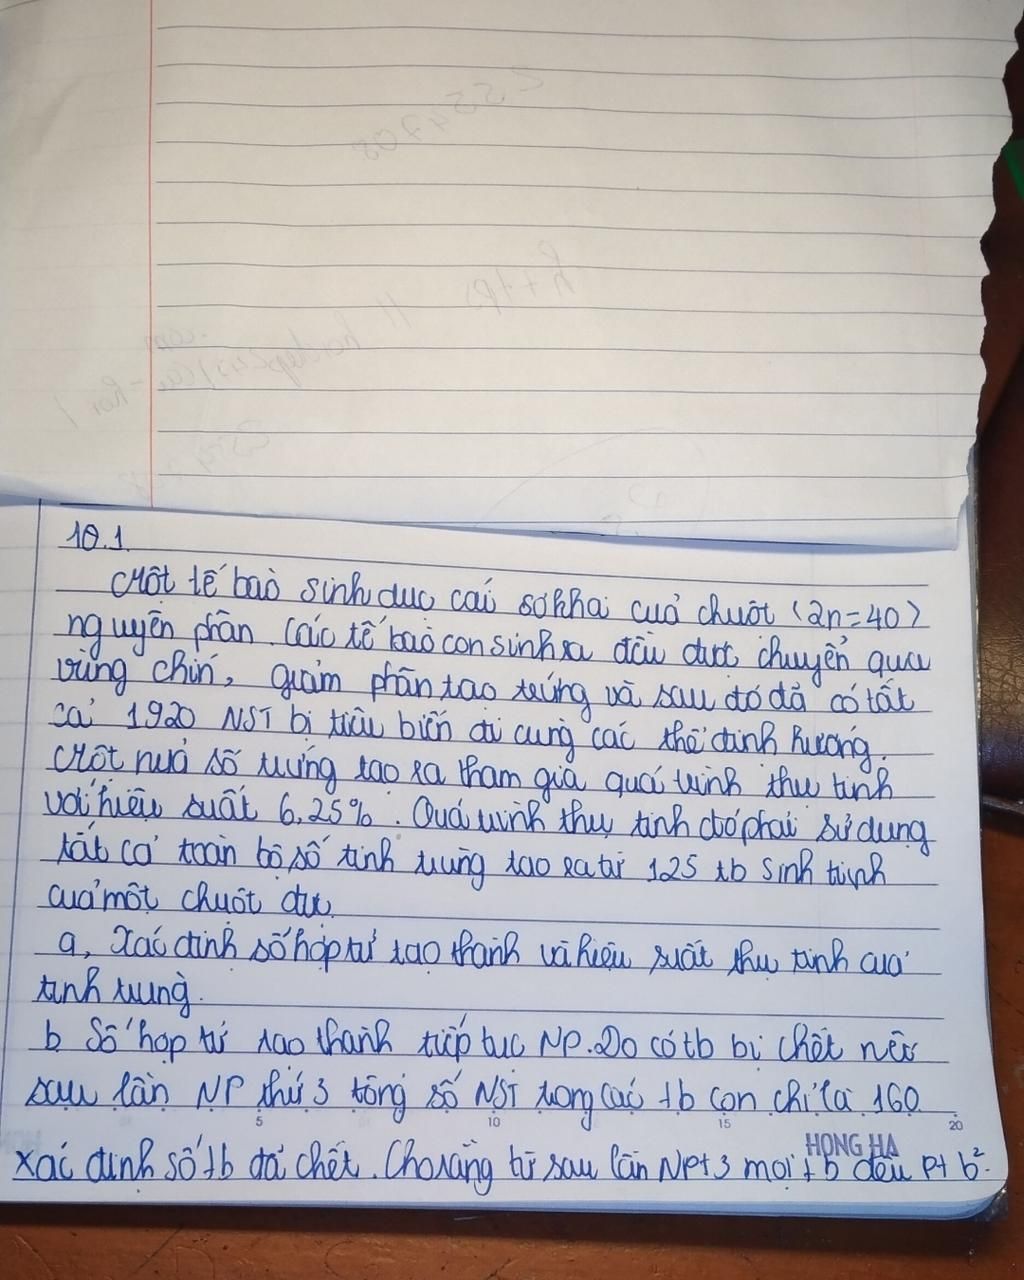 10.1.
Một tế bào sinh dục cái sơ khai của chuột (2n=40)
nguyên phân. Các tế bào con sinh ra đều được chuyển qua
vùng chín, giảm phân tạo trứng và sau đó đã có tất
cả 1920 NST bị tiêu biến đi cùng các thể định hướng.
Một nửa số trứng tạo ra tham gia quá trình thụ tinh
với hiệu suất 6,25%. Quá trình thụ tinh đó phải sử dụng
tất cả toàn bộ số tinh trùng tạo ra từ 125 tb sinh tinh
của một chuột đực.
a, Xác định số hợp tử tạo thành và hiệu suất thụ tinh của
tinh trùng.
b Số hợp tử tạo thành tiếp tục NP. Do có tb bị chết nên
sau lần NP thứ 3 tổng số NST trong các tb con chỉ là 160.
5 10 15 20
HONG HA
Xác định số tb đã chết. Cho rằng từ sau lần NP t3 mọi tb đều pt bt.